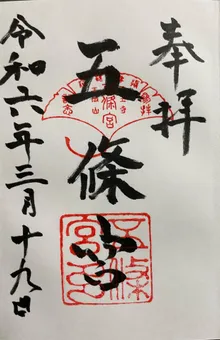 奉拝
五條宮
令和六年三月十九日
五條
宮印